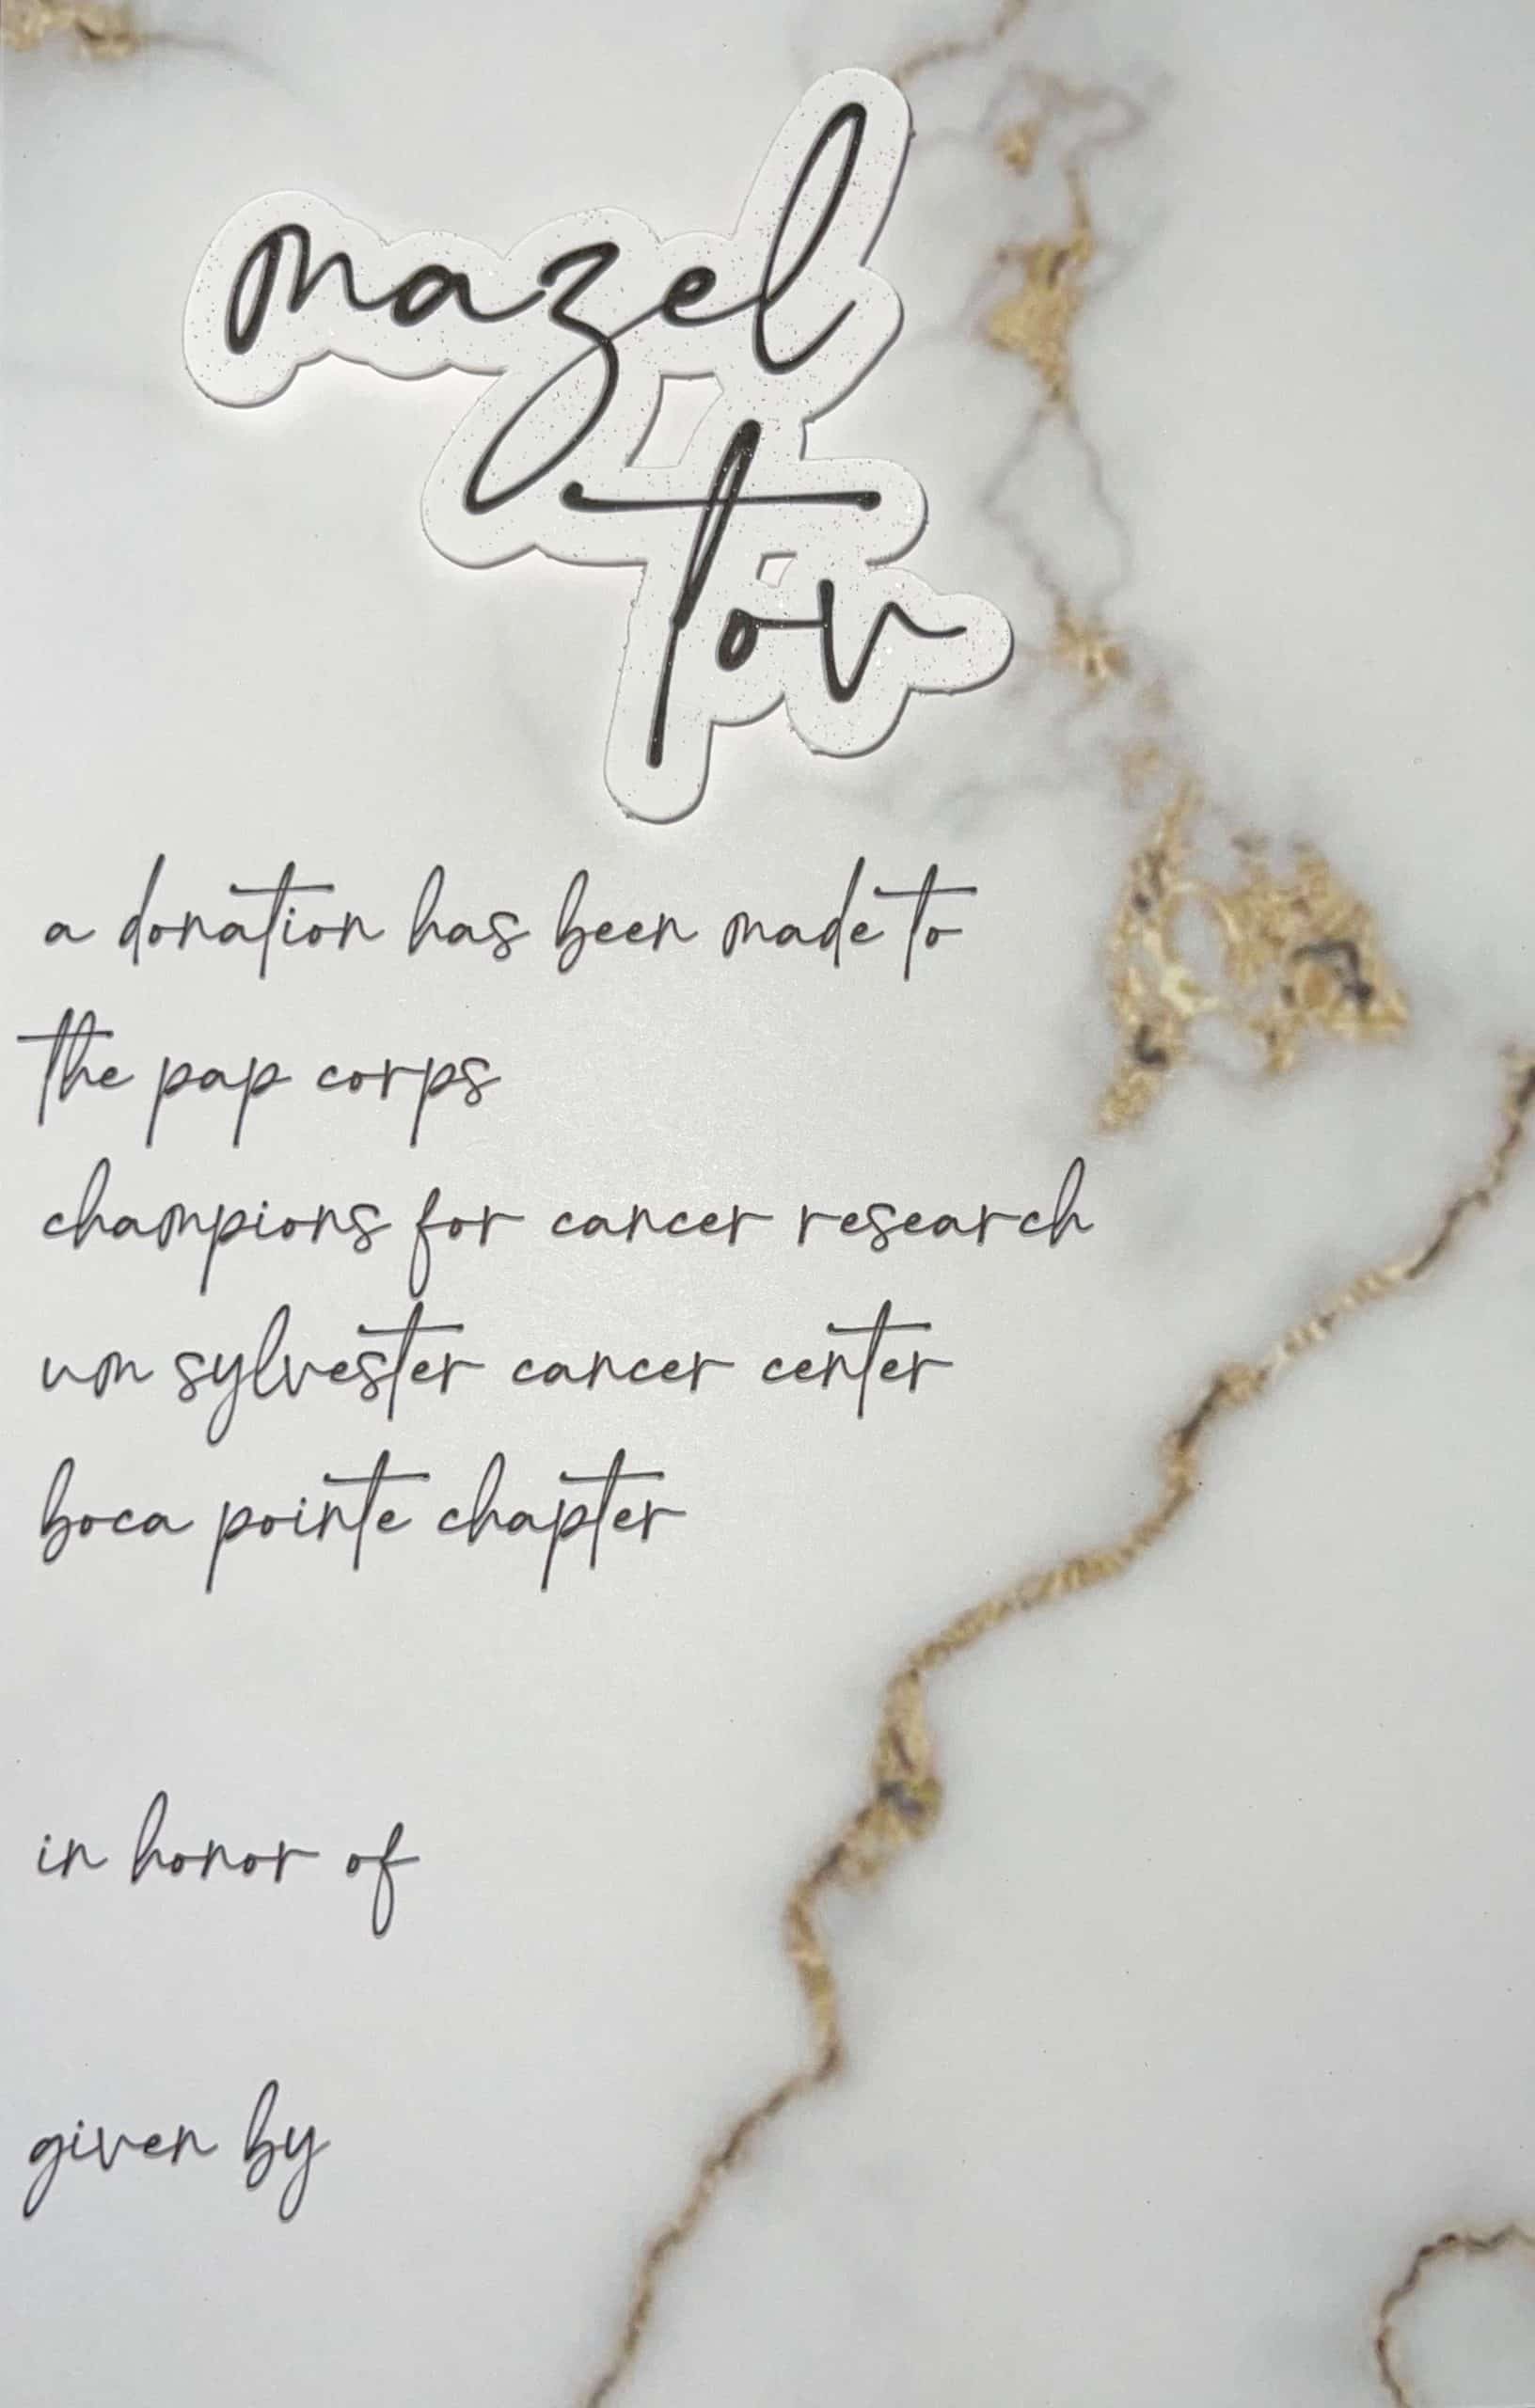 mazel
tov
a donation has been made to
the pap corps
champions for cancer research
um sylvester cancer center
boca pointe chapter
in honor of
given by